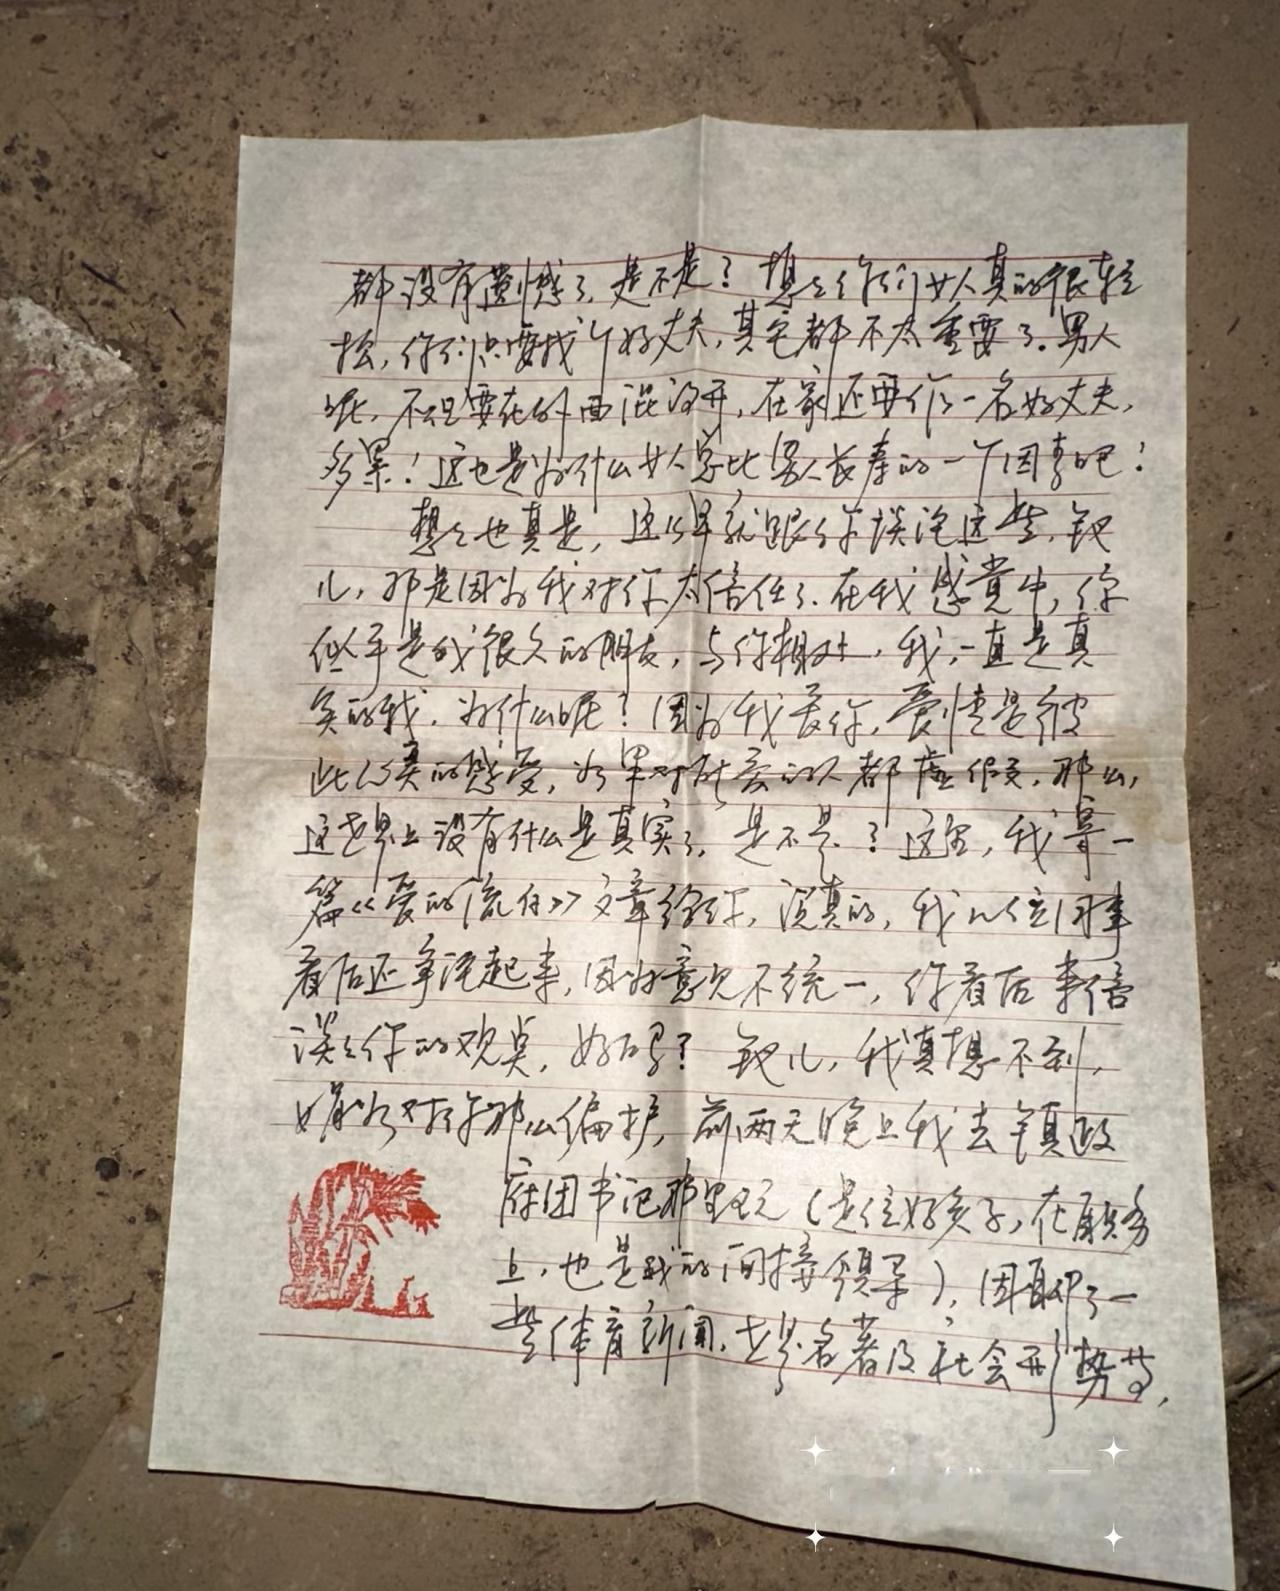 都没有遗憾了,是不是?想想你们女人真的很轻
松,你们只要找个好丈夫,其它都不太重要了。男人
呢,不但要在外面混得开,在家还要作一名好丈夫,
多累!这也是为什么女人总比男人长寿的一个因素吧!
想想也真是,这么早就跟你谈论这些,
儿,那是因为我对你太信任了。在我感觉中,你
似乎是我很久的朋友,与你相处,我一直是真
实的我,为什么呢?因为我爱你,爱情是彼
此心灵的感受,如果对所爱的人都虚假,那么,
这世界上没有什么是真实了,是不是?这里,我寄一
篇《爱的流行》文章给你,说真的,我几位同事
看后还争论起来,因为意见不统一,你看后来信
谈谈你的观点,好吗? 儿,我真想不到,
对你那么偏护,前两天晚上我去镇政
府团书记那里玩(是位好孩子,在职务
上,也是我的间接领导),因聊了一
些体育新闻,世界名著及社会形势等,